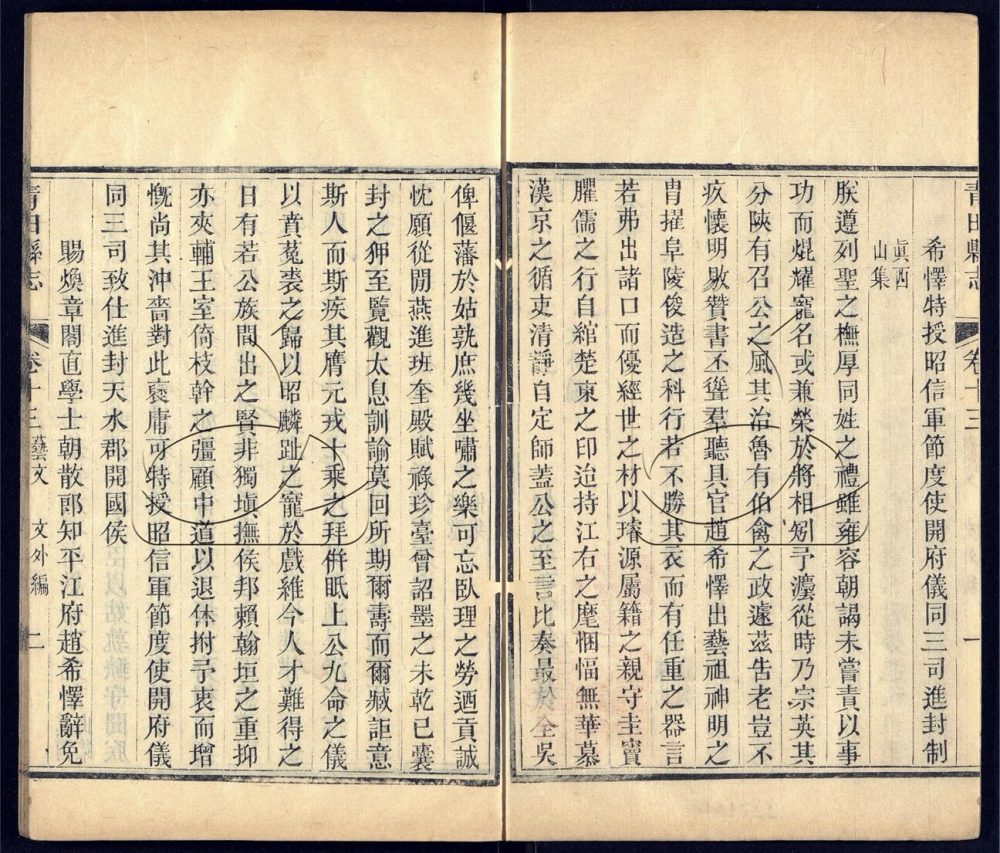 青田縣志
卷十三
一
希懌特授昭信軍節度使開府儀同三司進封制
眞西
山集
朕遵列聖之憮厚同姓之禮雖雍容朝謁未嘗責以事
功而焜耀寵名或兼榮於將相矧予瀍從時乃宗英其
分陝有召公之風其治魯有伯禽之政遽茲告老豈不
疚懷明敭贊書丕聳羣聽具官趙希懌出藝祖神明之
胄擢阜陵俊造之科行若不勝其衣而有任重之器言
若弗出諸口而優經世之材以璿源屬籍之親守圭竇
臞儒之行自綰楚東之印迨持江右之麾悃愊無華慕
漢京之循吏清靜自定師蓋公之至言比奏最於全吳
俾偃藩於姑孰庶幾坐嘯之樂可忘臥理之勞迺貢誠
忱願從閒燕進班奎殿賦祿珍臺曾詔墨之未乾已囊
封之狎至覽觀太息訓諭莫回所期爾壽而爾臧詎意
斯人而斯疾其膺元戎十乘之拜併眂上公九命之儀
以賁菟裘之歸以昭麟趾之寵於戲維今人才難得之
日有若公族間出之賢非獨塡撫侯邦賴翰垣之重抑
亦夾輔王室倚枝幹之彊顧中道以退休拊予衷而增
慨尚其沖嗇對此褒庸可特授昭信軍節度使開府儀
同三司致仕進封天水郡開國侯
賜煥章閣直學士朝散郎知平江府趙希懌辭免
青田縣志
卷十三 藝文
文外編
二